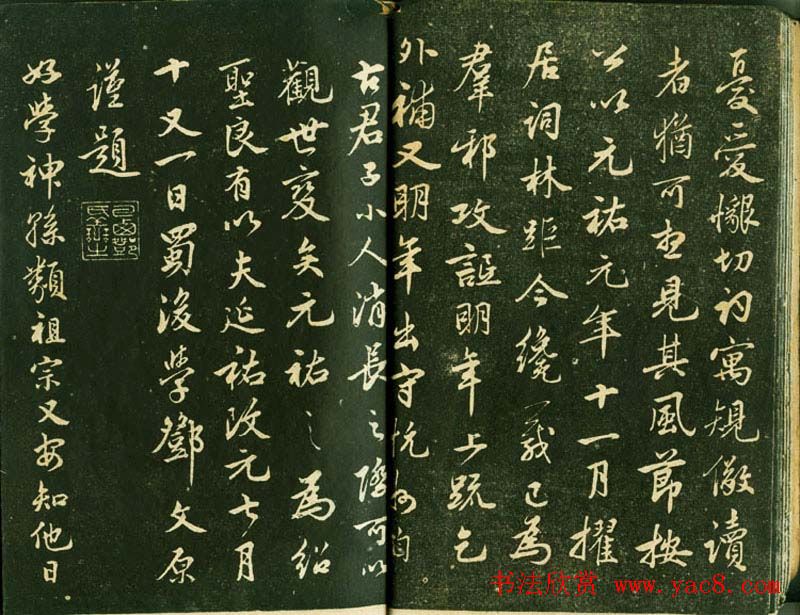 憂愛懇切寓規儆讀
者猶可想見其風節按
公以元祐元年十一月擢
居詞林距今纔一歲已為
羣邪攻詆明年上疏乞
外補又明年出守杭州自
古君子小人消長之際可以
觀世變矣元祐之為紹
聖良有以夫延祐改元七月
十又一日蜀後學鄧文原
謹題
巴西鄧氏善之
好學神孫類祖宗又安知他日
书法欣赏 www.yac8.com